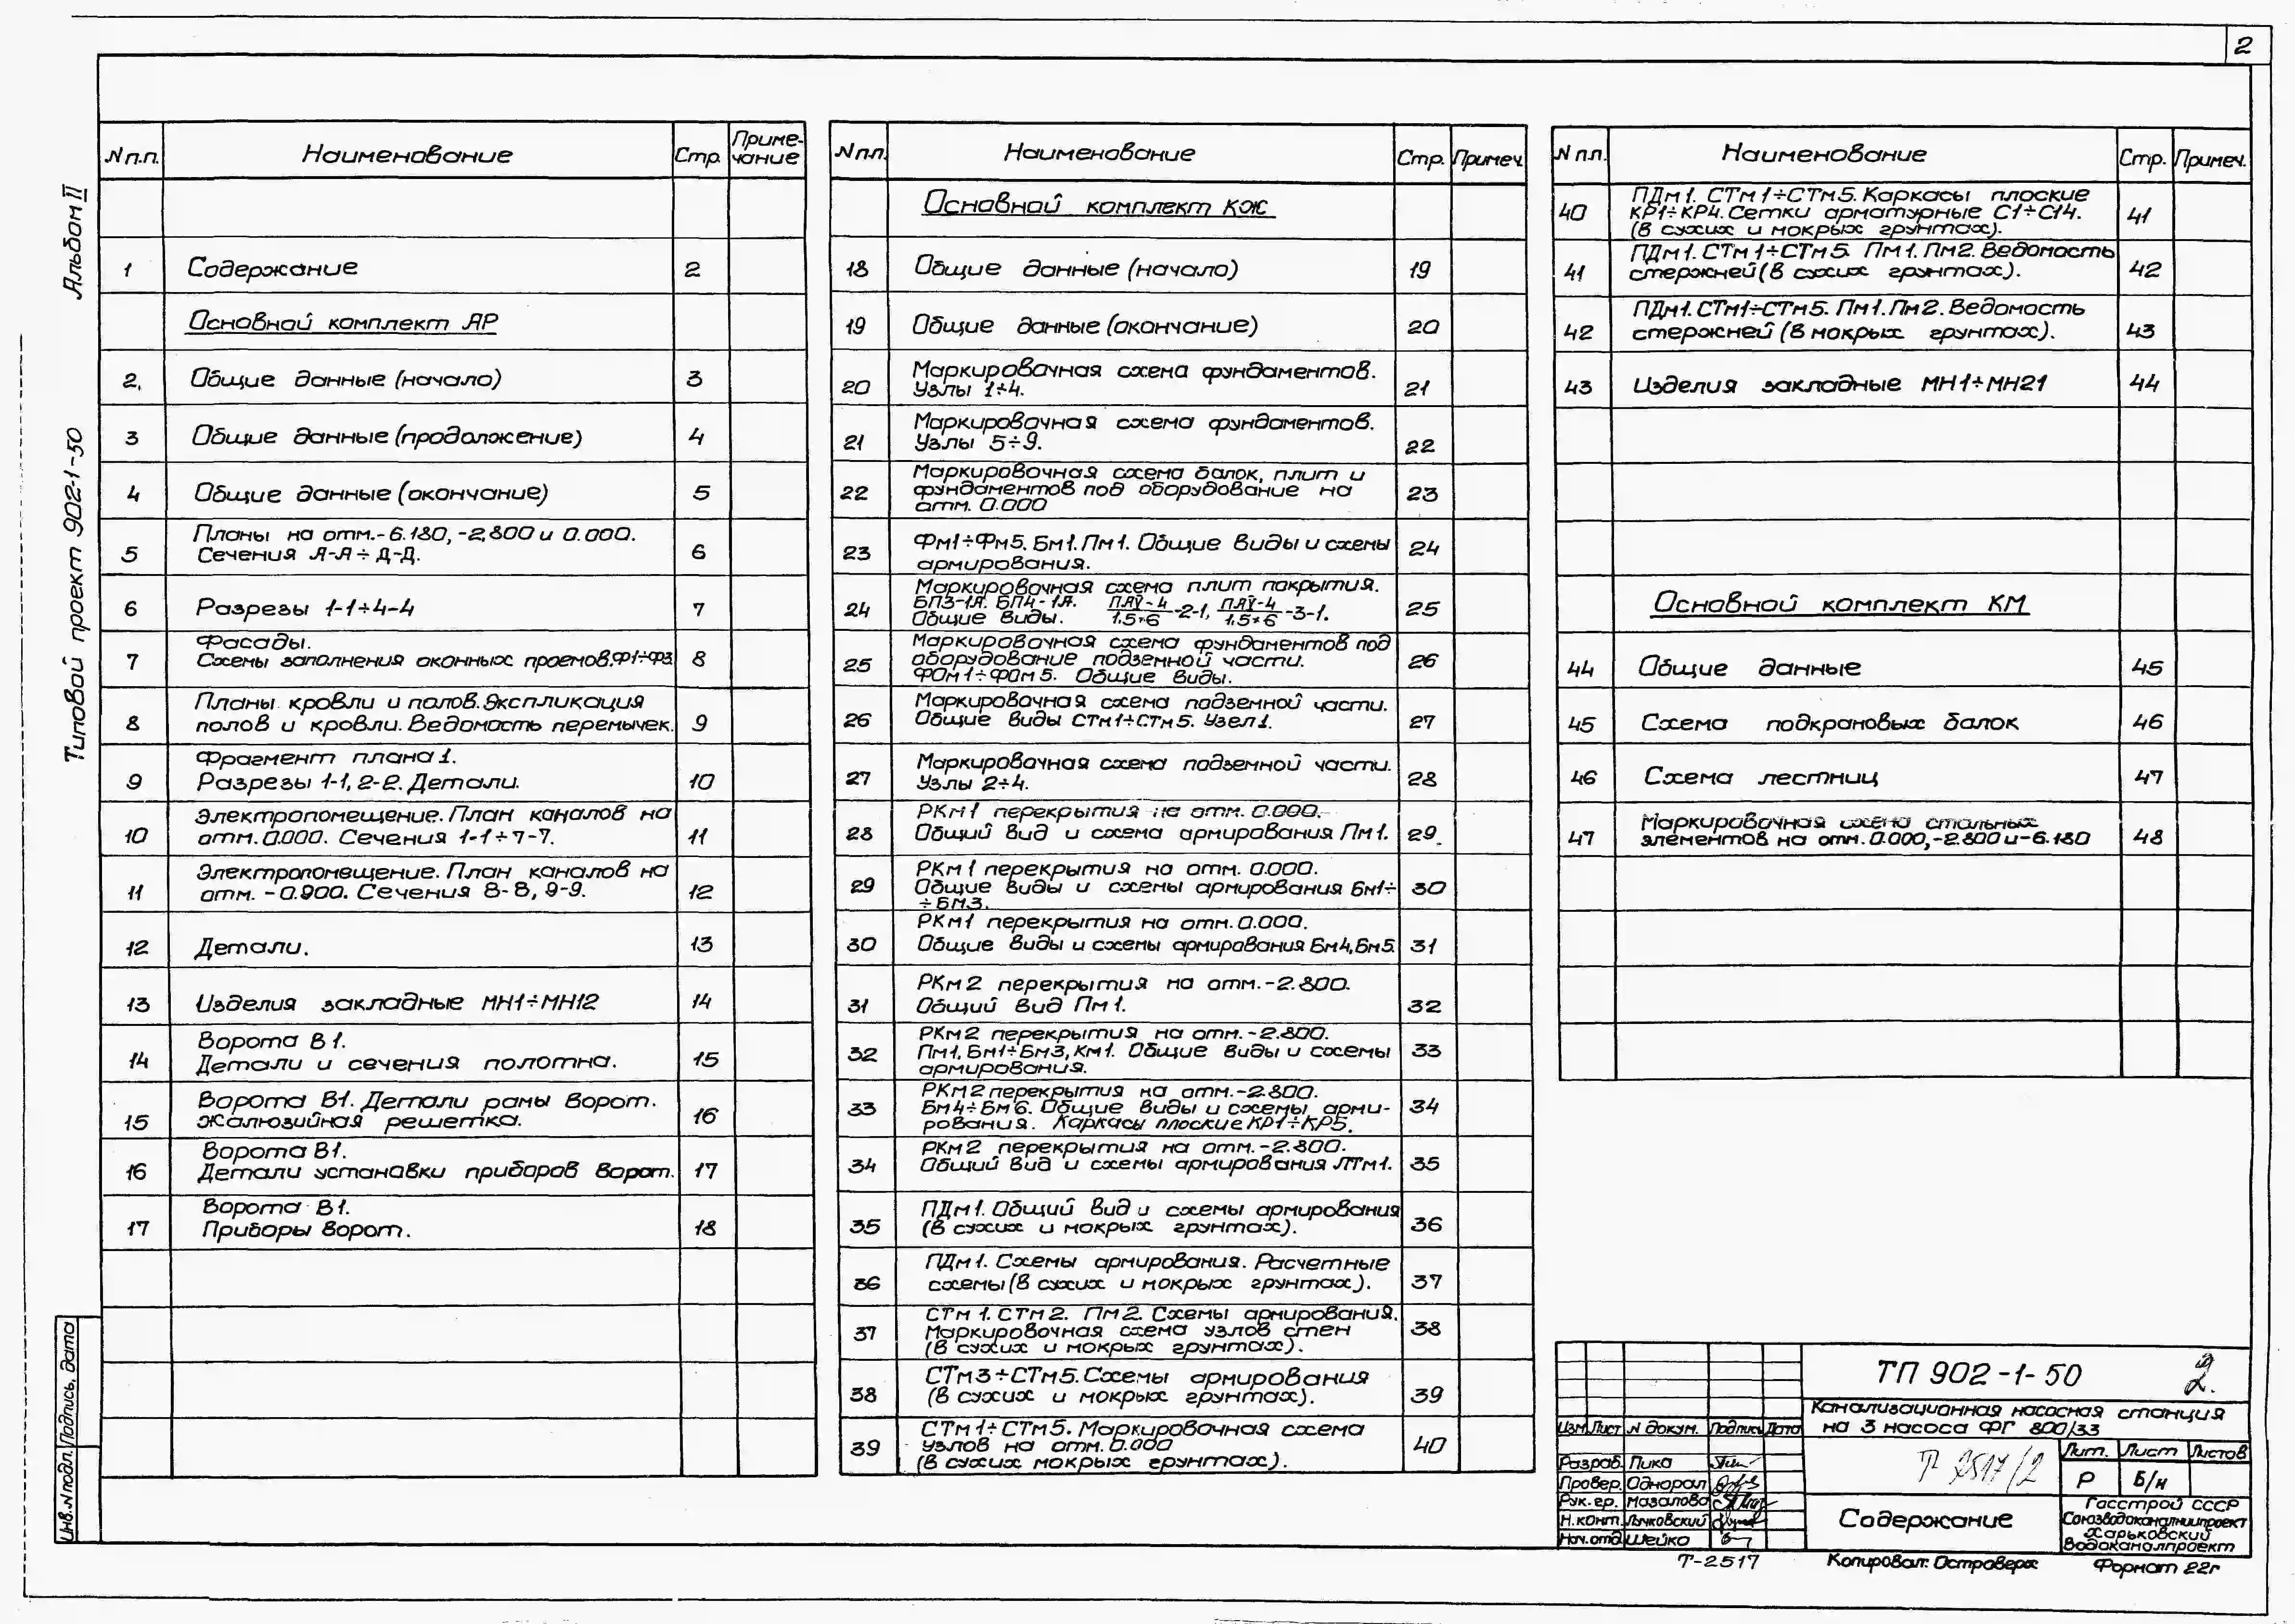 2
Альбом II
Типовой проект 902-1-50
Инв.N подл. Подпись, дата
N п.п. Наименование Стр. Приме-
чание
1 Содержание 2
Основной комплект АР
2. Общие данные (начало) 3
3 Общие данные (продолжение) 4
4 Общие данные (окончание) 5
Планы на отм.-6.180, -2.800 и 0.000.
5 Сечения А-А÷Д-Д. 6
6 Разрезы 1-1÷4-4 7
Фасады.
7 Схемы заполнения оконных проемов.Ф1÷Ф3. 8
Планы кровли и полов.Экспликация
8 полов и кровли. Ведомость перемычек. 9
Фрагмент плана 1.
9 Разрезы 1-1, 2-2. Детали. 10
Электропомещение. План каналов на
10 отм. 0.000. Сечения 1-1÷7-7. 11
Электропомещение. План каналов на
11 отм. -0.900. Сечения 8-8, 9-9. 12
12 Детали. 13
13 Изделия закладные МН1÷МН12 14
Ворота В1.
14 Детали и сечения полотна. 15
Ворота В1. Детали рамы ворот.
15 Жалюзийная решетка. 16
Ворота В1.
16 Детали установки приборов ворот. 17
Ворота В1.
17 Приборы ворот. 18
N п.п. Наименование Стр. Примеч.
Основной комплект КЖ
18 Общие данные (начало) 19
19 Общие данные (окончание) 20
Маркировочная схема фундаментов.
20 Узлы 1÷4. 21
Маркировочная схема фундаментов.
21 Узлы 5÷9. 22
Маркировочная схема балок, плит и
22 фундаментов под оборудование на 23
отм. 0.000
23 Фм1÷Фм5. Бм1. Пм1. Общие виды и схемы 24
армирования.
Маркировочная схема плит покрытия.
24 БП3-1А. БП4-1А. ПАУ-4/1,5×6-2-1, ПАУ-4/1,5×6-3-1. 25
Общие виды.
Маркировочная схема фундаментов под
25 оборудование подземной части. 26
ФОм1÷ФОм5. Общие виды.
Маркировочная схема подземной части.
26 Общие виды СТм1÷СТм5. Узел 1. 27
Маркировочная схема подземной части.
27 Узлы 2÷4. 28
РКм1 перекрытия на отм. 0.000.
28 Общий вид и схема армирования Пм1. 29
РКм1 перекрытия на отм. 0.000.
29 Общие виды и схемы армирования Бм1÷ 30
÷Бм3.
РКм1 перекрытия на отм. 0.000.
30 Общие виды и схемы армирования Бм4,Бм5. 31
РКм2 перекрытия на отм.-2.800.
31 Общий вид Пм1. 32
РКм2 перекрытия на отм.-2.800.
32 Пм1, Бм1÷Бм3, Км1. Общие виды и схемы 33
армирования.
РКм2 перекрытия на отм.-2.800.
33 Бм4÷Бм6. Общие виды и схемы арми- 34
рования. Каркасы плоские КР1÷КР5.
РКм2 перекрытия на отм.-2.800.
34 Общий вид и схемы армирования ЛТм1. 35
ПДм1. Общий вид и схемы армирования
35 (в сухих и мокрых грунтах). 36
ПДм1. Схемы армирования. Расчетные
36 схемы (в сухих и мокрых грунтах). 37
СТм1. СТм2. Пм2. Схемы армирования.
37 Маркировочная схема узлов стен 38
(в сухих и мокрых грунтах).
СТм3÷СТм5. Схемы армирования
38 (в сухих и мокрых грунтах). 39
СТм1÷СТм5. Маркировочная схема
39 узлов на отм. 0.000 40
(в сухих мокрых грунтах).
N п.п. Наименование Стр. Примеч.
ПДм1. СТм1÷СТм5. Каркасы плоские
40 КР1÷КР4. Сетки арматурные С1÷С14. 41
(в сухих и мокрых грунтах).
ПДм1. СТм1÷СТм5. Пм1. Пм2. Ведомость
41 стержней (в сухих грунтах). 42
ПДм1. СТм1÷СТм5. Пм1. Пм2. Ведомость
42 стержней (в мокрых грунтах). 43
43 Изделия закладные МН1÷МН21 44
Основной комплект КМ
44 Общие данные 45
45 Схема подкрановых балок 46
46 Схема лестниц 47
Маркировочная схема стальных
47 элементов на отм. 0.000,-2.800 и -6.180 48
ТП 902-1-50 2.
Канализационная насосная станция
на 3 насоса ФГ 800/33
Изм. Лист N докум. Подпись Дата
Т 2517/2
Лит. Лист Листов
Р Б/н
Разраб. Пика
Провер. Однорал
Рук.гр. Мазалова
Н.конт. Лычковский
Нач.отд. Шейко
Содержание
Госстрой СССР
Союзводоканалниипроект
Харьковский
Водоканалпроект
Т-2517 Копировал: Островерх Формат 22г